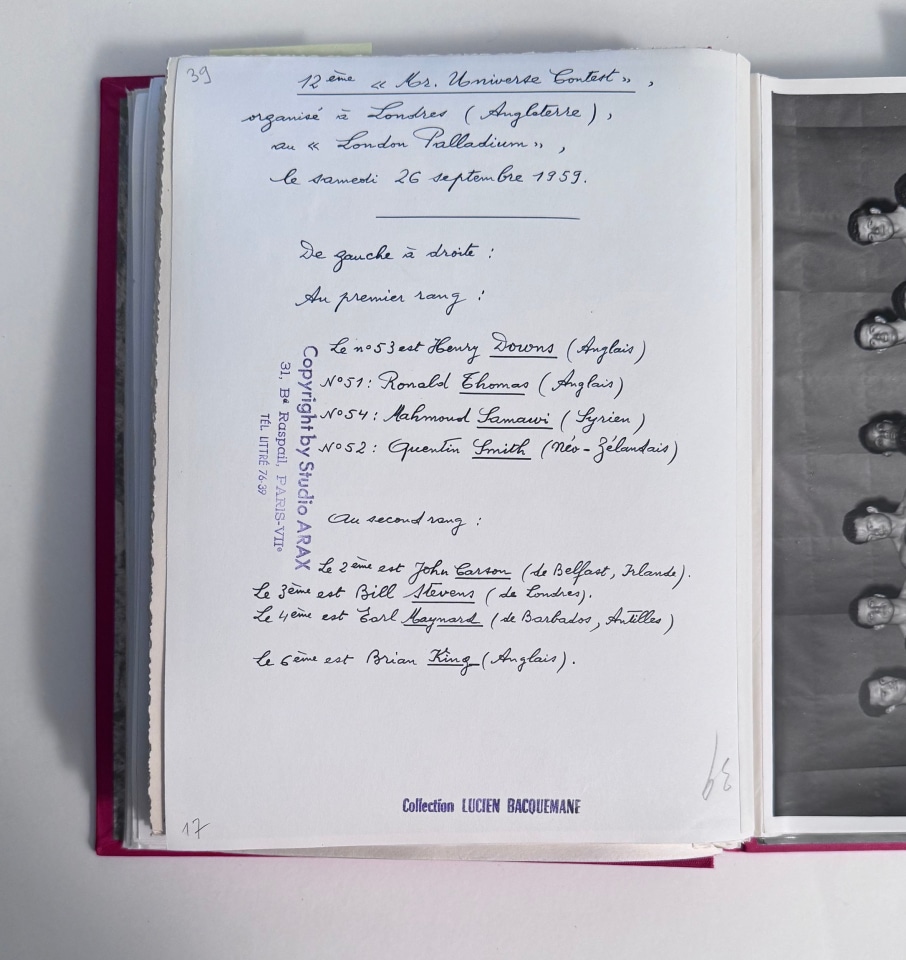 39
12ème « Mr. Universe Contest »,
organisé à Londres (Angleterre),
au « London Palladium »,
le samedi 26 septembre 1959.
De gauche à droite :
Au premier rang :
Le n°53 est Henry Downs (Anglais)
N°51 : Ronald Thomas (Anglais)
N°54 : Mahmoud Samawi (Syrien)
N°52 : Quentin Smith (Néo-Zélandais)
Au second rang :
Le 2ème est John Carson (de Belfast, Irlande).
Le 3ème est Bill Stevens (de Londres).
Le 4ème est Earl Maynard (de Barbados, Antilles)
Le 6ème est Brian King (Anglais).
Copyright by Studio ARAX
31, Bd Raspail, PARIS-VIIe
TÉL. LITTRÉ 76-39
Collection LUCIEN BACQUEMANE
39
17